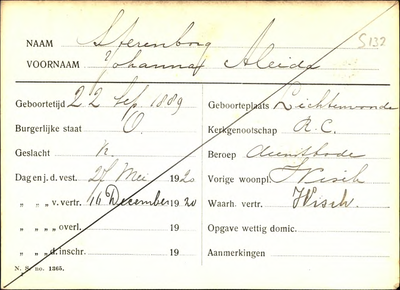 S132
NAAM Sterenborg
VOORNAAM Johanna Aleida
Geboortetijd 22 Sep. 1889 Geboorteplaats Lichtenvoorde
Burgerlijke staat O. Kerkgenootschap R.C.
Geslacht Beroep dienstbode
Dag en j. d. vest. 27 Mei 1920 Vorige woonpl. Wisch
„ „ „ v. vertr. 16 December 1920 Waarh. vertr. Wisch.
„ „ „ overl. 19 Opgave wettig domic.
„ „ „ d. inschr. 19 Aanmerkingen
N. S. no. 1365.